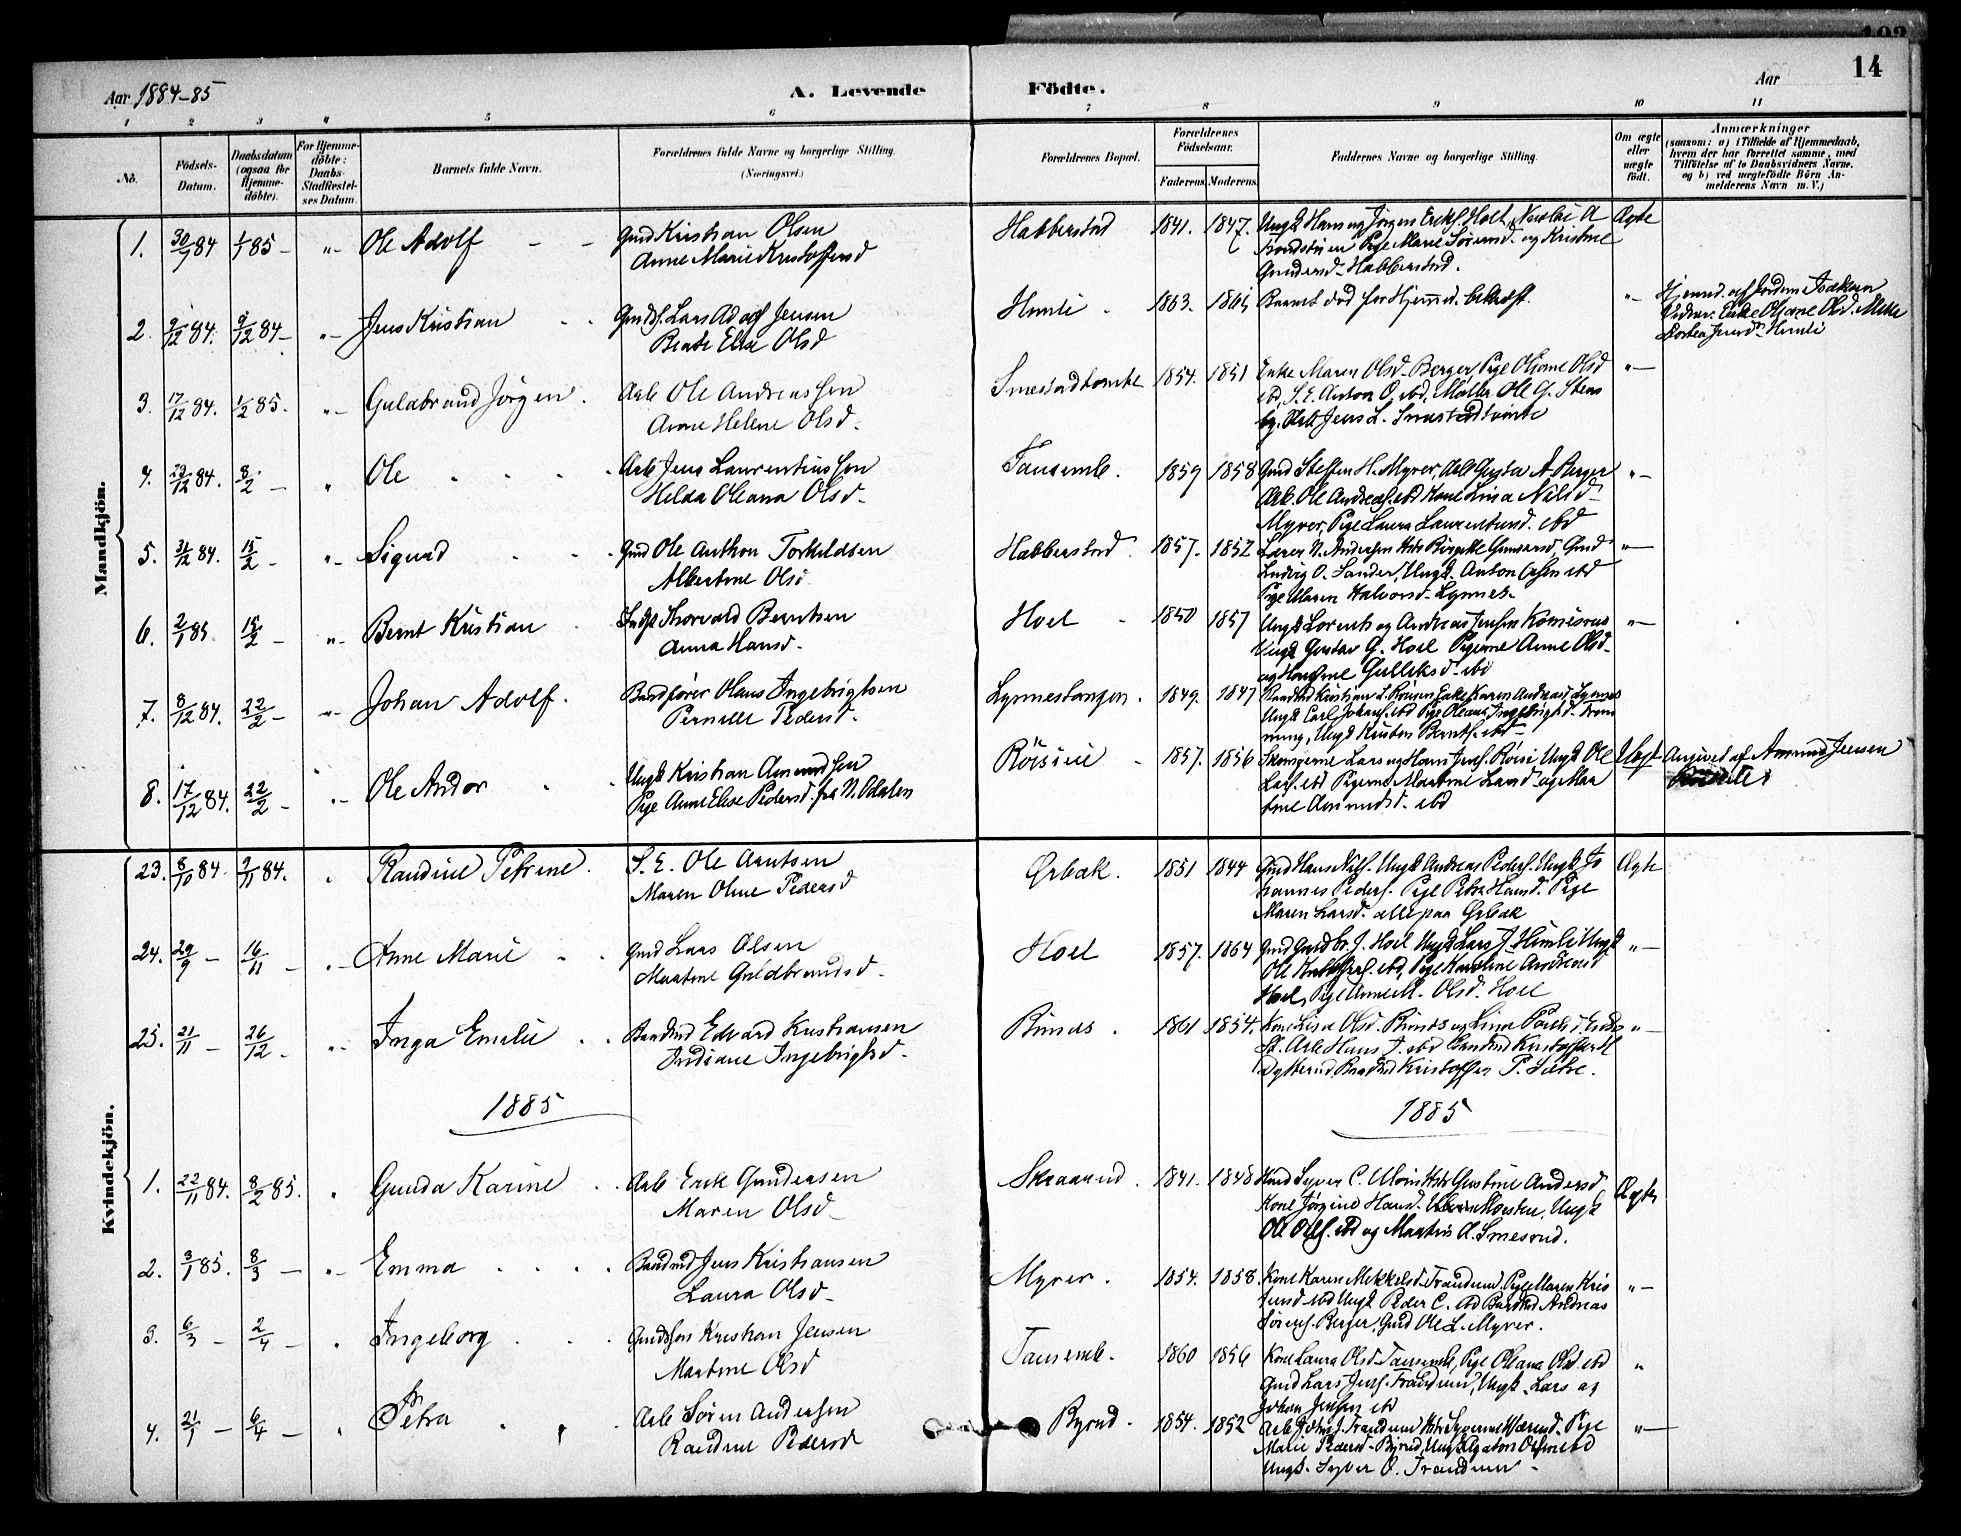 14
Aar 1884-85
A. Levende
Födte.
Aar
1 2 3 4 5 6 7 8 9 10 11
No.
Födsels-Datum.
Daabsdatum (ogsaa for Hjemme-döbte).
For Hjemme-döbte: Daabs-Stadfæstel-ses Datum.
Barnets fulde Navn.
Forældrenes fulde Navne og borgerlige Stilling.
(Næringsvei.)
Forældrenes Bopæl.
Forældrenes Födselsaar.
Faderens. Moderens.
Faddernes Navne og borgerlige Stilling.
Om ægte eller uægte födt.
Anmærkninger
(saasom: a) i Tilfælde af Hjemmedaab, hvem der har forrettet samme, med Tilföielse af to Daabsvidners Navne. og b) ved uægtefödte Börn An-melderens Navn m. V.)
Mandkjön.
1. 30/9 84 1/1 85 - "- Ole Adolf - - Gmd Kristian Olsen
Anne Marie Kristoffersd
Habberstad 1841. 1847. Ungk Hans og Jörgen Eriks. Holt, Nicolai A
Pige Marie Sörensd. og Kristine
Gundersd. Habberstad.
Ægte
2. 9/12 84. 9/12 84 - "- Jens Kristian Gmds. Lars Adolf Jensen
Beate Elise Olsd
Himli - 1863. Barnet död før Hjemmed. bekræft.
"- Hjemmed. af Jordem. Isaksen
Vidner: Enke Oliane Olsd. Mette
Dorthea Jensd. Himli
3. 17/12 84. 1/2 85. "- Guldbrand Jörgen. Arb Ole Andreassen
Anne Helene Olsd.
Smestadtomte 1854. 1851 Enke Maren Olsd. Berger, Pige Oliane Olsd
ibd, S. E. Anton O. ibd, Møller Ole G. Stens
Arb Jens L. Smestadtomte
"-
4. 29/12 84. 8/2 - " Ole Arb Jens Laurentiussen
Helda Oleana Olsd.
Tausemb. 1859 1858 Gmd Steffen H. Myrer, Arb Gustav A Berger
Arb. Ole Andreas. ibd Kone Lina Nilsd
Myrer, Pige Laura Laurentsensd. ibd
"-
5. 31/12 84. 15/2 - "- Sigurd Gmd Ole Anthon Torkildsen
Albertine Olsd
Habberstad. 1857. 1852 Lærer N. Andersen Hstr Birgitte Gunnersd, Gmd
Ludvig O. Sander, Ungk. Anton Olsen ibd
Pige Maren Halvorsd. Lynnes
"-
6. 2/1 85. 15/2 - "- Bernt Kristian Inds Thorvald Berntsen
Anna Hansd.
Hoel - 1850 1857 Ungk Lorents og Andreas Jensen Komisrud
Ungk Gustav G. Hoel Pigerne Anne Olsd
og Gulliksd. ibd
"-
7. 8/12 84. 22/2 - "- Johan Adolf. Brudfører Olaus Ingebrigtsen
Pernelle Pedersd.
Lynnestangen. 1849. 1847 Kristian L. Röisen Enke Karen Andreasd Lynnes
Ungk Carl Johans. ibd Pige Oleane Ingebrigtsd.
Ungk Kristen Bernts. ibd
8. 17/12 84. 22/2 - "- Ole Andor Ungk Kristian Amundsen
Pige Anne Elise Pedersd. fra N. Odalen
Röisiie - 1857. 1856 Lars og Hans Jens. Röisi Ungk Ole
Lars. ibd Pigerne Martine Larsd og Maa
tine Amundsd. ibd
Uægt Angivet af Amund Jensen
Kvindekjön.
23. 8/10 84. 2/11 84. Randine Petrine. S. E. Ole Arntsen
Maren Oline Pedersd
Ørbæk. 1851 1844 Gmd Hans Nils. Ungk Andreas Peders. Ungk Jo
hannes Peders. Pige Petra Hansd. Pige
Maren Larsd. alle paa Ørbæk
Ægte
24. 29/9 - 16/11 - "- Anne Marie Gmd Lars Olsen
Martine Guldbrandsd.
Hoel 1857. 1864 Gmd Guldbr. J. Hoel Ungk Lars J. Himli Ungk
Ole Kristoffers. ibd, Pige Karoline Andreasd
Hoel, Pige Anne M. Olsd. Hoel
"-
25. 21/11 - 26/12 - "- Inga Emilie Bandmd Edvard Kristiansen
Indiane Ingebrigtsd.
Rinaas. 1861 1854. Kone Lisa Olsd. Rinaas og Lina
Arb Hans J. ibd Kristoffer H
Kristoffer P. Sætre.
"-
1885 1885
1. 22/11 84. 8/2 85. " Gunda Karine Arb Erik Gundersen
Maren Olsd.
Skraarud. 1841. 1848 Syver C. Ulvin Hstr Gustine Andersd
Kone Jörgine Hansd. Ungk
Ole Ols. ibd og Martin A. Smesrud.
Ægte
2. 3/1 85. 8/3 - "- Emma Bandmd Jens Kristiansen
Laura Olsd.
Myrer. 1854. 1858. Kone Karen Mikkelsd. Trandum. Pige Maren Kris
tiansd ibd Ungk Peder C. ibd Andreas
Sörens. Berger, Gmd Ole L. Myrer.
"-
3. 6/3 - 2/4 - " Ingeborg Gmdssøn Kristian Jensen
Martine Olsd
Tausemb. 1860 1856 Kone Laura Olsd. Tausemb, Pige Oleana Olsd. ibd
Gmd Lars Jens. Trandum, Ungk. Lars og
Johan Jensen ibd
"
4. 21/1 - 6/4 - " Petra Arb Sören Andersen
Randine Pedersd
Byrud. 1854. 1852 Arb Johan J. Trandum Pige
Marie Pedersd. Byrud, Ungk Anton Olsen ibd
Ungk. Syver O. Trandum -
"-